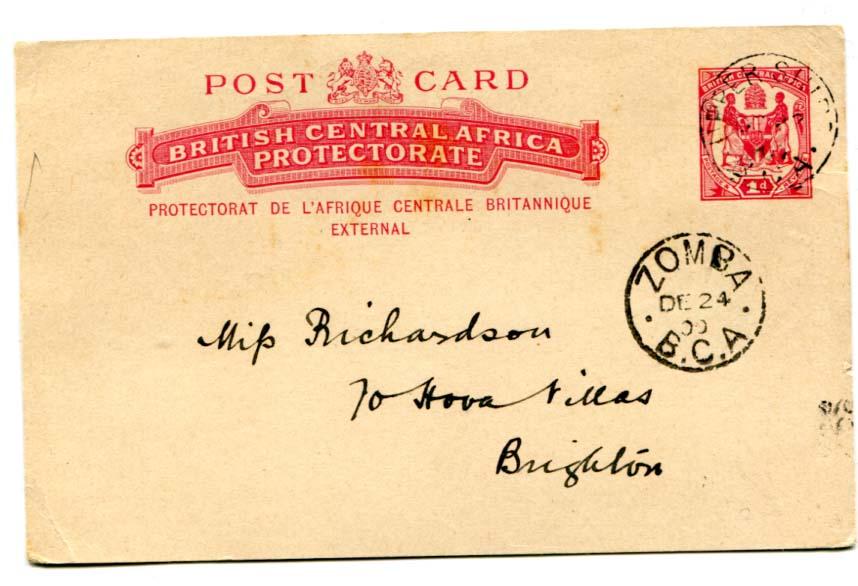 POST CARD
BRITISH CENTRAL AFRICA
PROTECTORATE
PROTECTORAT DE L'AFRIQUE CENTRALE BRITANNIQUE
EXTERNAL
BRITISH CENTRAL AFRICA
1d
ZOMBA
DE 24
00
B.C.A.
Miss Richardson
70 Hova Villas
Brighton